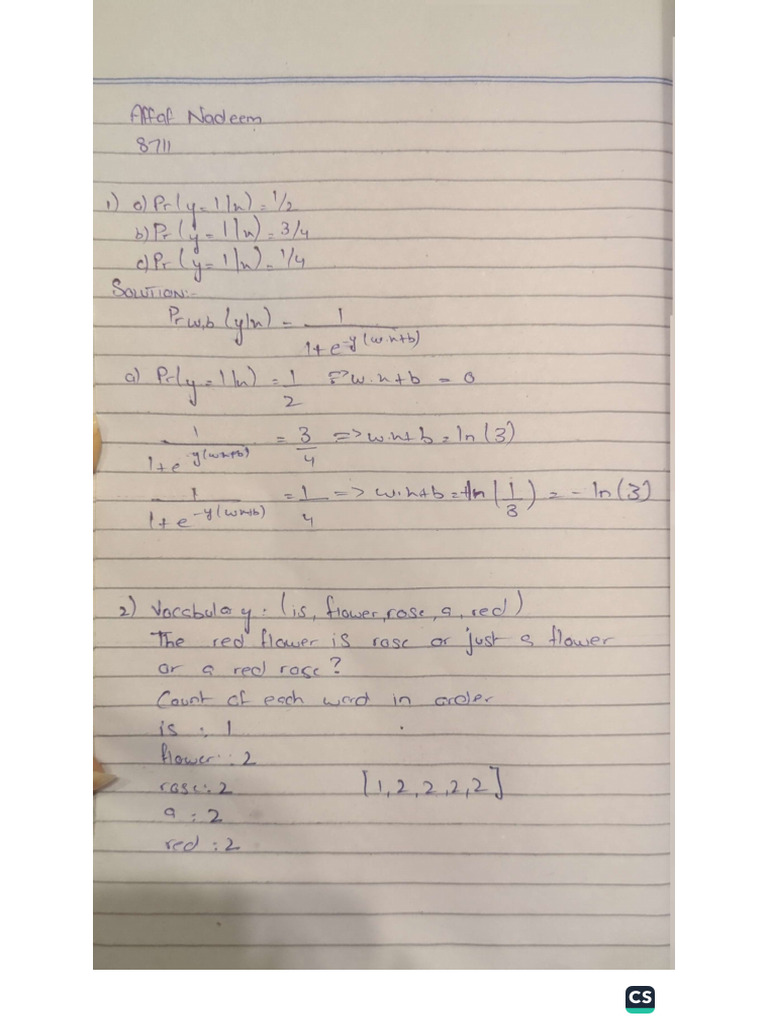 Affaf Nadeem
8711
1) a) Pr(y=1|x) = 1/2
b) Pr(y=1|x) = 3/4
c) Pr(y=1|x) = 1/4
SOLUTION:-
Pr w,b (y|x) = 1/(1+e^-y(w.x+b))
a) Pr(y=1|x) = 1/2 => w.x+b = 0
1/(1+e^-y(wx+b)) = 3/4 => w.x+b = ln(3)
1/(1+e^-y(wx+b)) = 1/4 => w.x+b = ln(1/3) = -ln(3)
2) Vocabulay: (is, flower, rose, a, red)
The red flower is rose or just a flower
or a red rose?
Count of each word in order
is : 1
flower: 2
rose: 2 [1,2,2,2,2]
a : 2
red : 2
CS